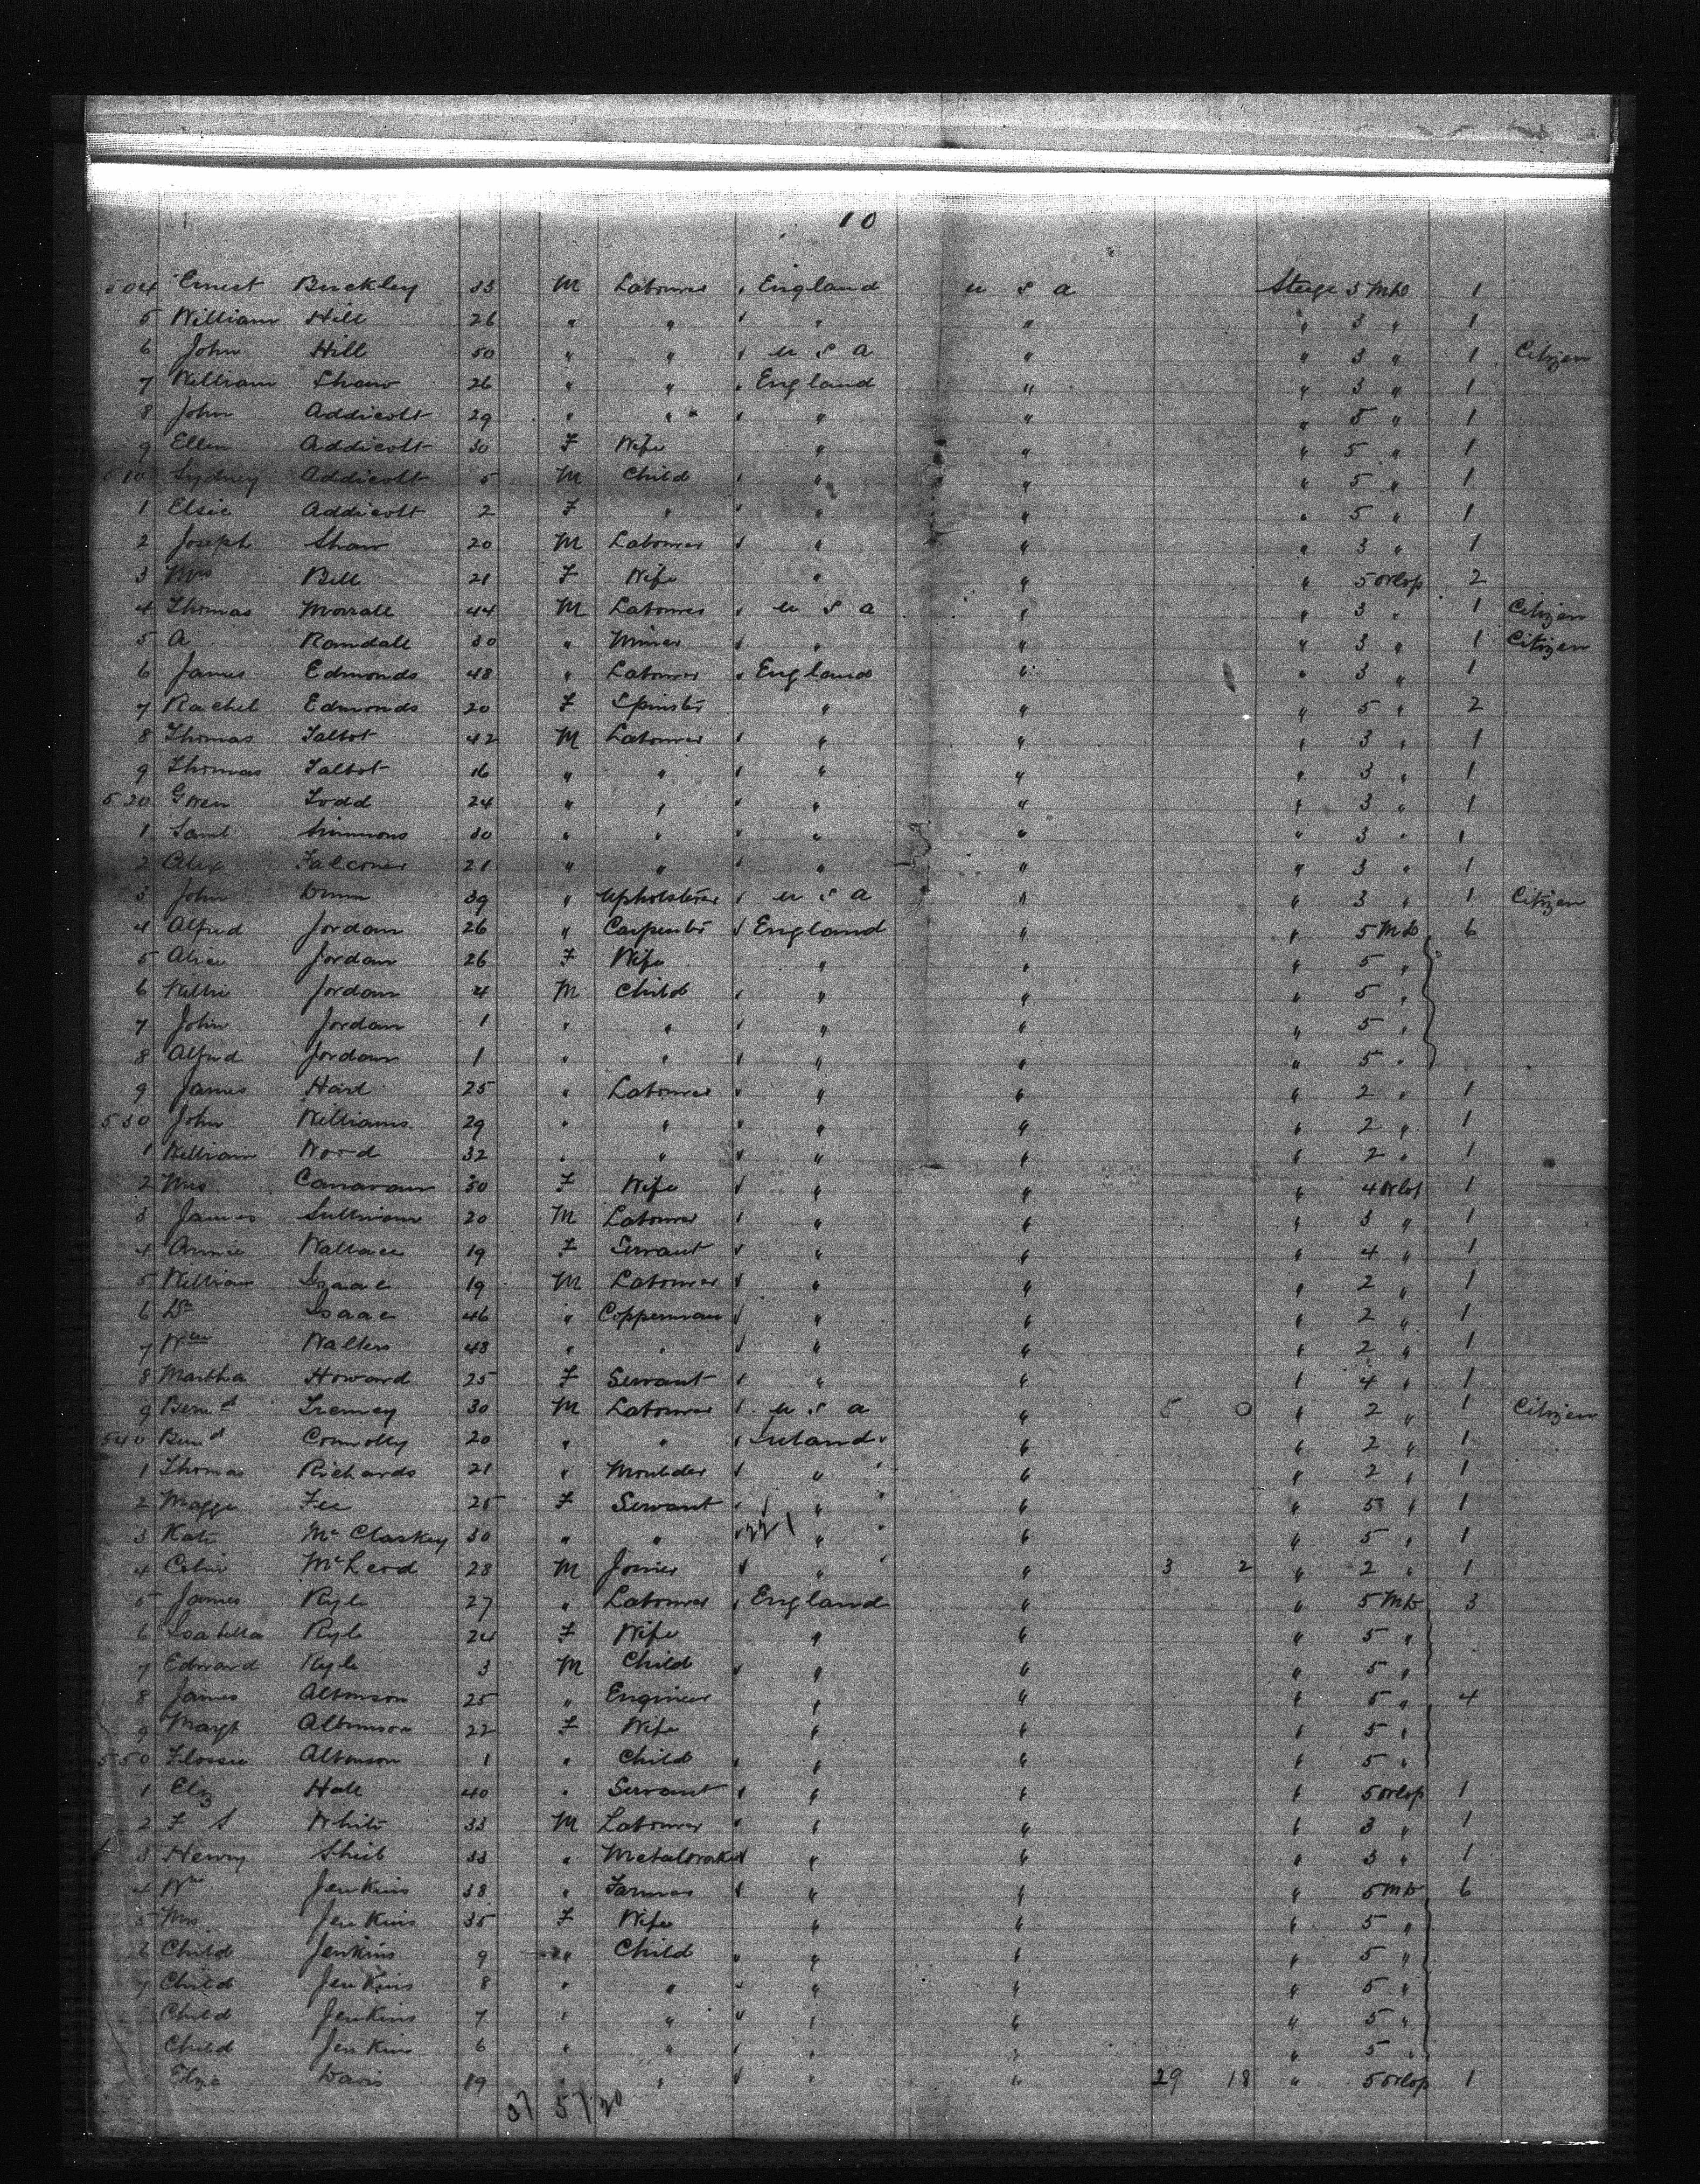 10
504 Ernest Buckley 33 M Labourer England U S A Steige 3 Mds 1
5 William Hill 26 " " " " " 3 " 1
6 John Hill 50 " " U S A " " 3 " 1 Citizen
7 William Shaw 26 " " England " " 3 " 1
8 John Addicott 29 " " " " " 5 " 1
9 Ellen Addicott 30 F Wife " " " 5 " 1
510 Sydney Addicott 5 M Child " " " 5 " 1
1 Elsie Addicott 2 F " " " " 5 " 1
2 Joseph Shaw 20 M Labourer " " " 3 " 1
3 Mrs Bell 21 F Wife " " " 5 Orlop 2
4 Thomas Morrall 44 M Labourer U S A " " 3 " 1 Citizen
5 A Randall 30 " Miner " " " 3 " 1 Citizen
6 James Edmonds 48 " Labourer England " " 3 " 1
7 Rachel Edmonds 20 F Spinster " " " 5 " 2
8 Thomas Talbot 42 M Labourer " " " 3 " 1
9 Thomas Talbot 16 " " " " " 3 " 1
520 Gwen Todd 24 " " " " " 3 " 1
1 Saml Simmons 30 " " " " " 3 " 1
2 Alex Falconer 21 " " " " " 3 " 1
3 John Dunn 39 " Upholsterer U S A " " 3 " 1 Citizen
4 Alfred Jordan 26 " Carpenter England " " 5 Mds 6
5 Alice Jordan 26 F Wife " " " 5 "
6 Willie Jordan 4 M Child " " " 5 "
7 John Jordan 1 " " " " " 5 "
8 Alfred Jordan 1 " " " " " 5 "
9 James Hart 25 " Labourer " " " 2 " 1
530 John Williams 29 " " " " " 2 " 1
1 William Wood 32 " " " " " 2 " 1
2 Mrs Canavan 30 F Wife " " " 4 Orlop 1
3 James Sullivan 20 M Labourer " " " 3 " 1
4 Annie Wallace 19 F Servant " " " 4 " 1
5 William Isaac 19 M Labourer " " " 2 " 1
6 Dd Isaac 46 " Copperman " " " 2 " 1
7 Wm Walters 48 " " " " " 2 " 1
8 Martha Howard 25 F Servant " " " 4 " 1
9 Bernd Treney 30 M Labourer U S A " 5 0 " 2 " 1 Citizen
540 Bernd Connolly 20 " " Ireland " " 2 " 1
1 Thomas Richards 21 " Moulder " " " 2 " 1
2 Maggie Fee 25 F Servant " " " 5 " 1
3 Kate McClaskey 30 " " 221 " " " 5 " 1
4 Colin McLeod 28 M Joiner " " 3 2 " 2 " 1
5 James Ryle 27 " Labourer England " " 5 Mds 3
6 Isabella Ryle 24 F Wife " " " 5 "
7 Edward Ryle 3 M Child " " " 5 "
8 James Altonson 25 " Engineer " " " 5 " 4
9 Margt Altonson 22 F Wife " " " 5 "
550 Flossie Altonson 1 " Child " " " 5 "
1 Elz Hall 40 " Servant " " " 5 Orlop 1
2 F S White 33 M Labourer " " " 3 " 1
3 Henry Sheib 33 " Metalworker " " " 3 " 1
4 Wm Jenkins 38 " Farmer " " " 5 Mds 6
5 Mrs Jenkins 35 F Wife " " " 5 "
6 Child Jenkins 9 " Child " " " 5 "
7 Child Jenkins 8 " " " " " 5 "
Child Jenkins 7 " " " " " 5 "
Child Jenkins 6 " " " " " 5 "
Davis 19 " " " " 29 18 " 5 Orlop 1
37 57 20